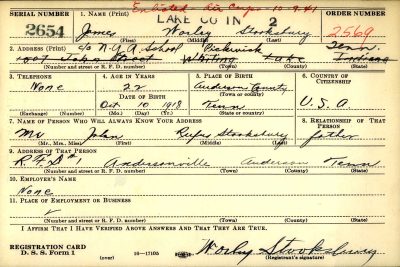 Enlisted Air Corps 10-9-41
SERIAL NUMBER 1. NAME (Print) ORDER NUMBER
LAKE CO IN 2
2654 James Worley Stooksbury 2569
(First) (Middle) (Last)
2. ADDRESS (Print) c/o N.Y.A. School Pickwick Tenn.
1007 John Street Whiting Lake Indiana
(Number and street or R. F. D. number) (Town) (County) (State)
3. TELEPHONE 4. AGE IN YEARS 5. PLACE OF BIRTH 6. COUNTRY OF CITIZENSHIP
None 22 Anderson County
DATE OF BIRTH (Town or county)
Oct 10 1918 Tenn U.S.A.
(Exchange) (Number) (Mo.) (Day) (Yr.) (State or country)
7. NAME OF PERSON WHO WILL ALWAYS KNOW YOUR ADDRESS 8. RELATIONSHIP OF THAT PERSON
Mr John Rufus Stooksbury father
(Mr., Mrs., Miss) (First) (Middle) (Last)
9. ADDRESS OF THAT PERSON
R.F.D #1 Andersonville Anderson Tenn
(Number and street or R. F. D. number) (Town) (County) (State)
10. EMPLOYER'S NAME
None
11. PLACE OF EMPLOYMENT OR BUSINESS
(Number and street or R. F. D. number) (Town) (County) (State)
I AFFIRM THAT I HAVE VERIFIED ABOVE ANSWERS AND THAT THEY ARE TRUE.
REGISTRATION CARD
D. S. S. Form 1 16—17105 Worley Stooksbury
(Registrant's signature)